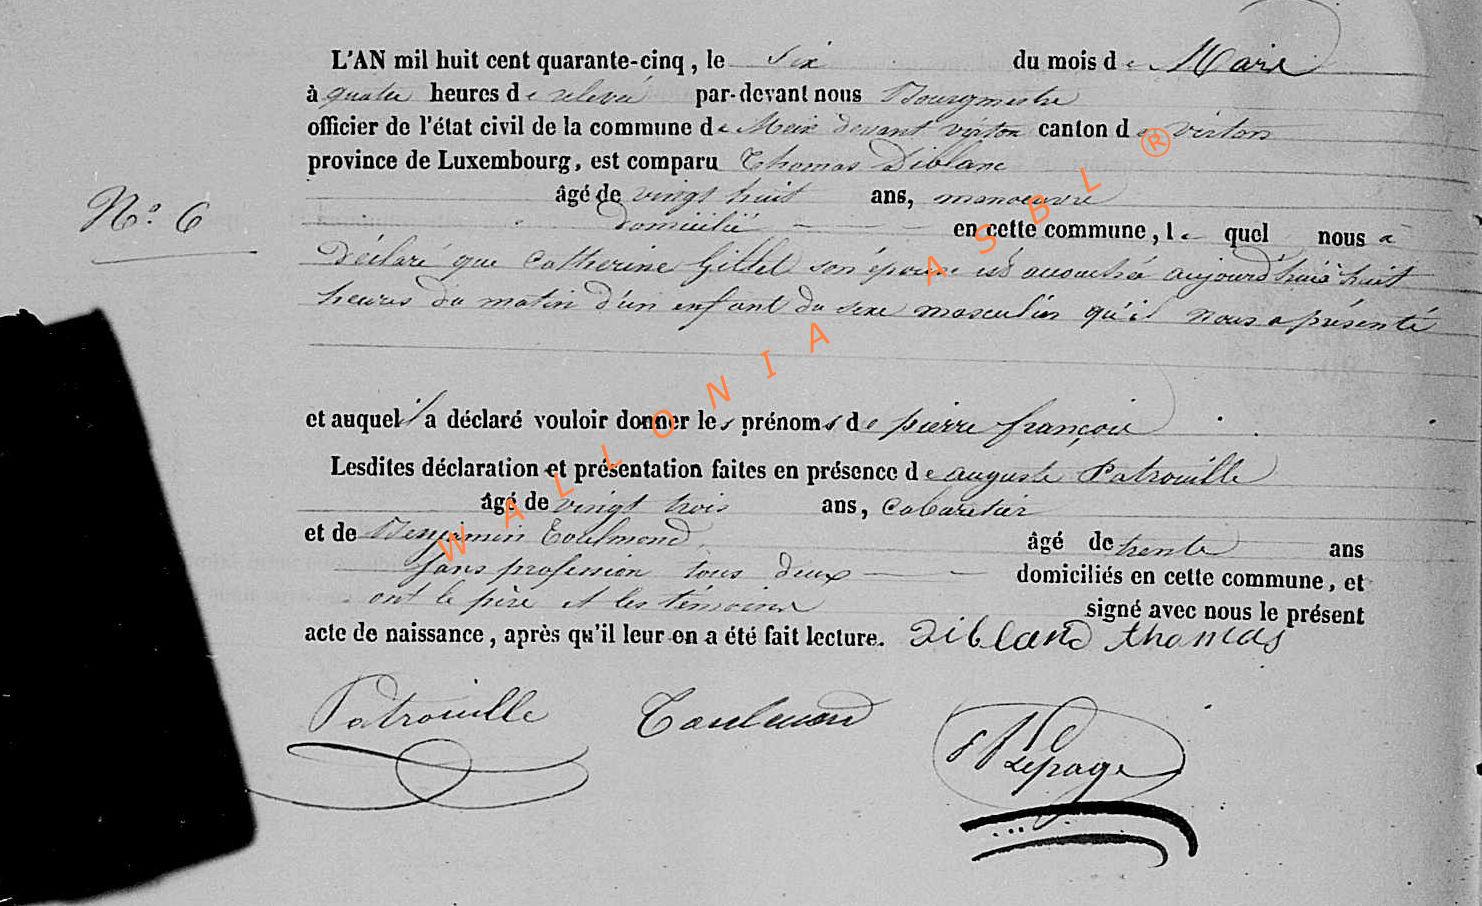 L'AN mil huit cent quarante-cinq, le six du mois de Mars
à quatre heures de relevée par-devant nous Bourgmestre
officier de l'état civil de la commune de Meix devant virton canton de virton
province de Luxembourg, est comparu Thomas Diblanc
N.° 6
âgé de vingt huit ans, manoeuvre
domicilié en cette commune, le quel nous a
Déclaré que Catherine Gillet son épouse est accouchée aujourd'hui à huit
heures du matin d'un enfant du sexe masculin qu'il nous a présenté
et auquel il a déclaré vouloir donner les prénoms de pierre françois
Lesdites déclaration et présentation faites en présence de auguste Patrouille
âgé de vingt trois ans, Cabaretier
et de Benjamin Toulmond âgé de trente ans
sans profession tous deux domiciliés en cette commune, et
ont le père et les témoins signé avec nous le présent
acte de naissance, après qu'il leur en a été fait lecture. Diblanc thomas
Patrouille Toulmond Lepage
WALLONIA ASBL ®